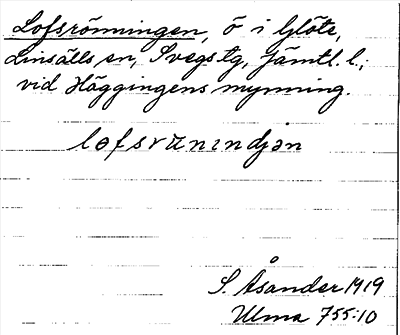 Lofsrönningen, ö i Glöte,
Linsälls sn, Svegs tg, Jämtl. l.;
vid Häggingens mynning.
S. Åsander 1919
Ulma 755:10